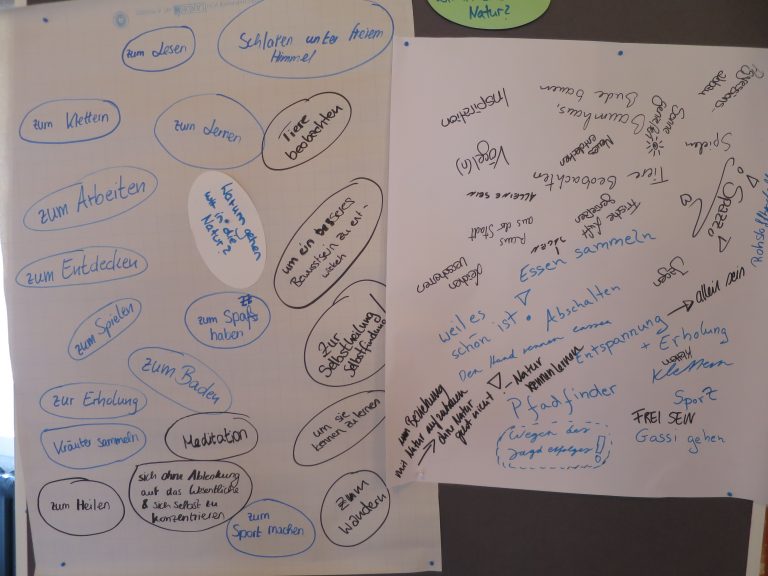 Natur?
zum Lesen
Schlafen unter freiem
Himmel
zum Klettern
zum Lernen
Tiere
beobachten
zum Arbeiten
Warum gehen
wir in die
Natur?
um ein besseres
Bewusstsein zu ent-
wickeln
zum Entdecken
zum Spielen
zum Spaß
haben
Zur
Selbstheilung/
Selbstfindung
zum Baden
zur Erholung
Kräuter sammeln
Meditation
um sie
kennen zu lernen
zum Heilen
sich ohne Ablenkung
auf das Wesentliche
& sich selbst zu
konzentrieren
zum
Sport machen
zum
Wandern
Aggressions
abbau
Inspiration
Baumhaus,
Bude bauen
Sonne
genießen
Neues
entdecken
Spielen
Vögel(n)
Tiere Beobachten
Alleine sein
Spazz
Frische Luft
genießen
Raus
aus der Stadt
Leichen
verscharren
Jagen
Essen sammeln
weil es
schön ist
Abschalten
allein sein
Den Hund rennen lassen
Entspannung
+ Erholung
Natur
kennenlernen
zum Beziehung
mit Natur aufzubauen
ohne Natur
geht nicht!
Pfadfinder
Klettern
Klettern
Sport
FREI SEIN
Gassi gehen
Wegen des
Jagd erfolges!